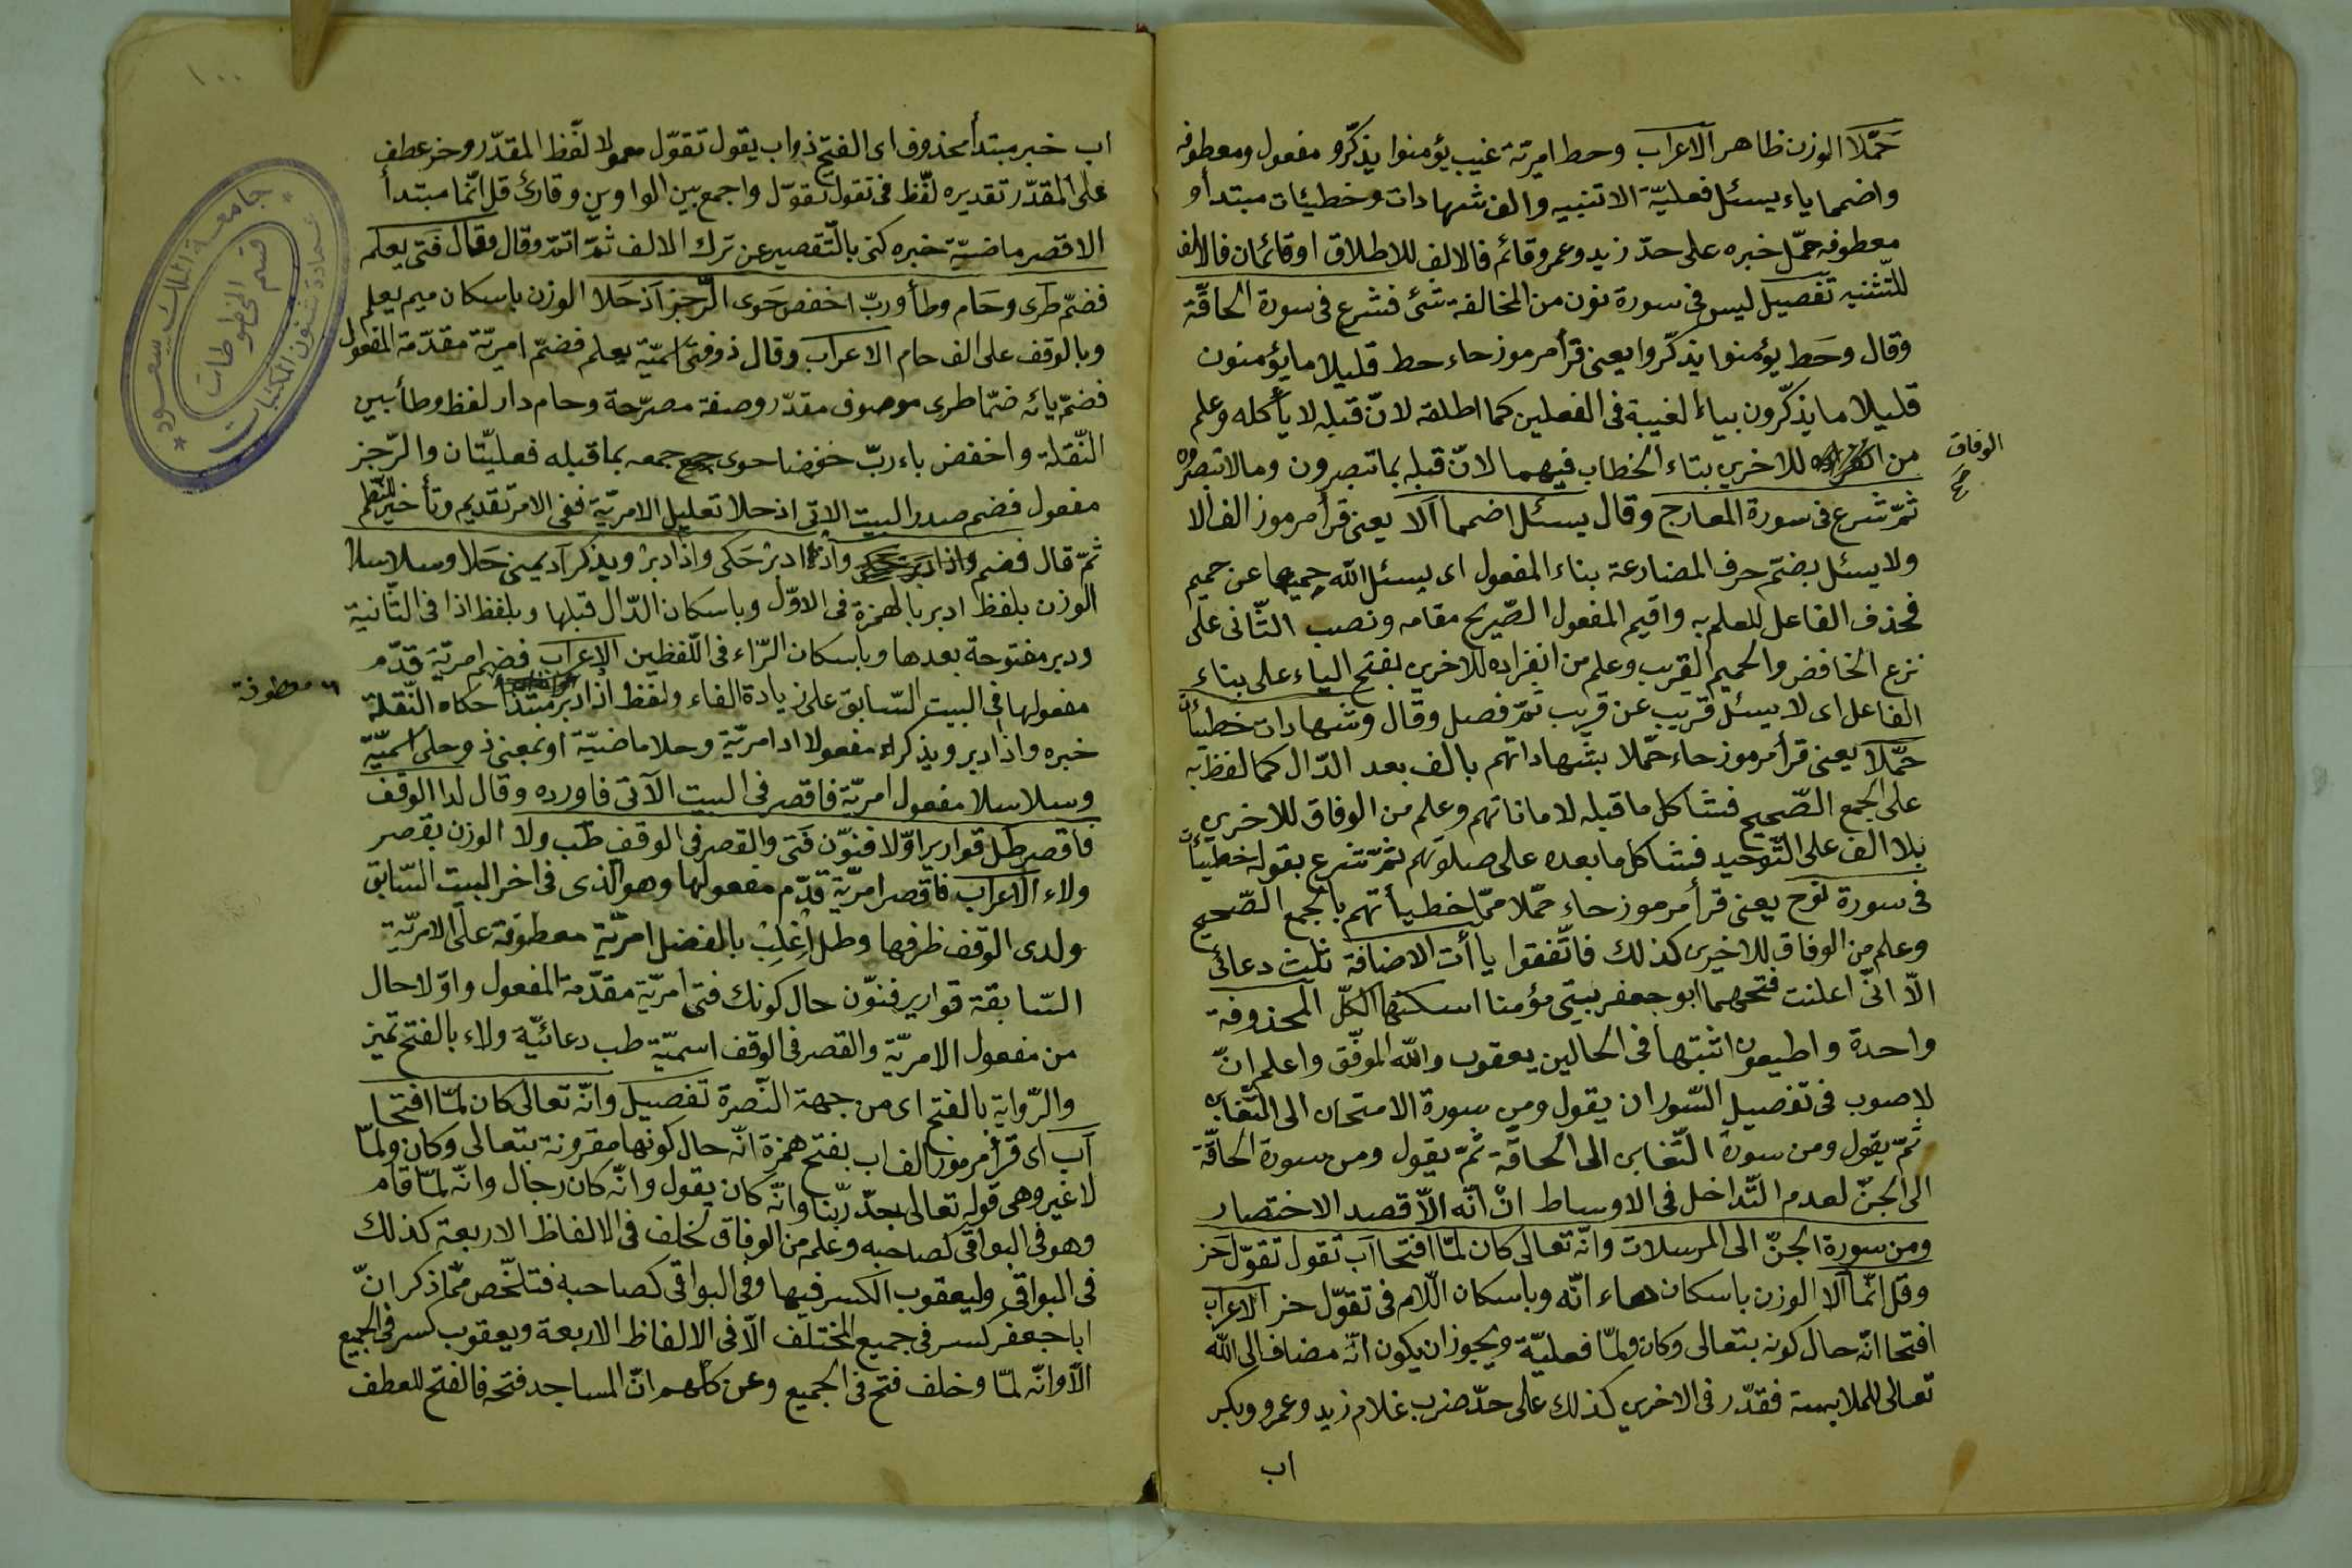 حَمَّلَا الوزن ظاهر الاعراب وحط امريّة غيب يؤمنوا يذكّرو مفعول ومعطوفه
واضمما ياء يسئل فعليّة الا تنبيه والف شهادات وخطيئات مبتدأ و
معطوفه حمّل خبره على حدّ زيد وعمرو قائم فالالف للاطلاق او قائمان فالالف
للتّثنيه تفصيل ليس فى سورة نون من المخالفة شئ فشرع فى سورة الحاقّة
وقال وحَط يؤمنوا يذكّروا يعنى قرأ مرموز حاء حط قليلا ما يؤمنون
قليلا ما يذكّرون بياء الغيبة فى الفعلين كما اطلقه لانّ قبله لا يأكله وعلم
من للاخرين بتاء الخطاب فيهما لانّ قبله بما تبصرون وما لا تبصرون
الوفاق
صح
ثمّ شرع فى سورة المعارج وقال يسئل اضمما آلا يعنى قرأ مرموز الف الا
ولا يسئل بضمّ حرف المضارعة بناء المفعول اى يسئل الله حميما عن حميم
فحذف الفاعل للعلم به واقيم المفعول الصّريح مقامه ونصب الثّانى على
نزع الخافض والحميم القريب وعلم من انفراده للاخرين بفتح الياء على بناء
الفاعل اى لا يسئل قريب عن قريب ثمّ فصل وقال وشهادات خطيئات
حمّلا يعنى قرأ مرموز حاء حمّلا بشهاداتهم بالف بعد الدّال كما لفظ به
على الجمع الصّحيح فشاكل ما قبله لاماناتهم وعلم من الوفاق للاخرين
بلا الف على التّوحيد فشاكل ما بعده على صلوتهم ثمّ شرع بقوله خطيئات
فى سورة نوح يعنى قرأ مرموز حاء حمّلا ممّا خطيأتهم بالجمع الصّحيح
وعلم من الوفاق للاخيرين كذلك فاتّفقوا يا أت الاضافة ثلث دعائى
الّا انّى اعلنت فتحهما ابو جعفر بيتى مؤمنا اسكنها الكلّ المحذوفة
واحدة واطيعون اثبتها فى الحالين يعقوب والله الموفّق واعلم انّ
لاصوب فى تفصيل السّور ان يقول ومن سورة الامتحان الى التّغابن
ثمّ يقول ومن سورة التّغابن الى الحاقّة ثمّ يقول ومن سورة الحاقّة
الى الجنّ لعدم التّداخل فى الاوساط انّ انّه الّا قصد الاختصار
ومن سورة الجنّ الى المرسلات وانّه تعالى كان لمّا افتحا آب تقول تقوّل حز
وقل انّما آلا الوزن باسكان هاء انّه وباسكان اللّام فى تقوّل حز الاعراب
افتحا انّه حال كونه بتعالى وكان ولمّا فعليّة ويجوز ان يكون انّه مضاف الى الله
تعالى للملابسة فقدّر فى الاخرين كذلك على حدّ ضرب غلام زيد وعمرو وبكر
اب
١٠٠
اب خبر مبتدأ محذوف اى الفتح ذو اب يقول تقوّل معمولا لفّظ المقدّر وحز عطف
على المقدّر تقديره لفّظ فى تقول تقوّل واجمع بين الواوين وقارئ قل انّما مبتدأ
الا قصر ماضيّة خبره كنى بالتّقصير عن ترك الالف ثمّ اتمّ وقال وقال فتى يعلم
فضمّ طرى وحام وطأ وربّ اخفض حوى الرّجز اذ حَلا الوزن باسكان ميم يعلم
وبالوقف على الف حام الاعراب وقال ذو فتى اسميّة يعلم فضمّ امريّة مقدّمة المفعول
فضمّ يائه ضمّا طرى موصوف مقدّر وصفة مصرّحة وحام دار لفظ وطأ بين
النّقلة واخفض باء ربّ خفضا حوى جمعه بما قبيله فعليّتان والرّجز
مفعول فضم صدر البيت الاتى اذ حلا تعليل الامريّة ففى الامر تقديم وتأخير للنّظم
ثمّ قال فضم واذا ادبر حَكى واذا دبر ويذكر اد يمنى حَلا وسلاسلا
الوزن بلفظ ادبر بالهمزة فى الاوّل وباسكان الدّال قبلها وبلفظ اذا فى الثّانية
ودبر مفتوحة بعدها وباسكان الرّاء فى اللّفظين الاعراب فضم امريّة قدّم
مفعولها فى البيت السّابق على زيادة الفاء ولفظ اذ ادبر مبتدأ حكاه النّقلة
معطوفة
خبره واذا دبر ويذكر مفعولا اد امريّة وحلا ماضيّة او بمعنى ذو حلى اسميّة
وسلاسلا مفعول امريّة فاقصر فى البيت الآتى فاورده وقال لدا الوقف
فاقصر طل قوارير اوّلا فنوّن فتى والقصر فى الوقف طب ولا الوزن بقصر
ولاء الاعراب فاقصر امريّة قدّم مفعولها وهو الذى فى اخر البيت السّابق
ولدى الوقف ظرفها وطل اغلب بالفضل امريّة معطوفة على الامريّة
السّابقة قوارير فنوّن حال كونك فتى امريّة مقدّمة المفعول واوّلا حال
من مفعول الامريّة والقصر فى الوقف اسميّة طب دعائيّة ولاء بالفتح تميز
والرّواية بالفتح اى من جهة النّصرة تفصيل وانّه تعالى كان لمّا افتحا
آب اى قرأ مرموز الف اب بفتح همزة انّه حال كونها مقرونة بتعالى وكان ولمّا
لا غير وهى قوله تعالى جدّ ربّنا وانّه كان يقول وانّه كان رجال وانّه لمّا قام
وهو فى البواقى كصاحبه وعلم من الوفاق لخلف فى الالفاظ الاربعة كذلك
فى البواقى وليعقوب الكسر فيها وفى البواقى كصاحبه فتلخّص ممّا ذكر انّ
ابا جعفر كسر فى جميع المختلف الّا فى الالفاظ الاربعة ويعقوب كسر فى الجميع
الّا وانّه لمّا وخلف فتح فى الجميع وعن كلّهم انّ المساجد فتحه فالفتح للعطف
جامعة الملك سعود
عمادة شئون المكتبات
قسم المخطوطات